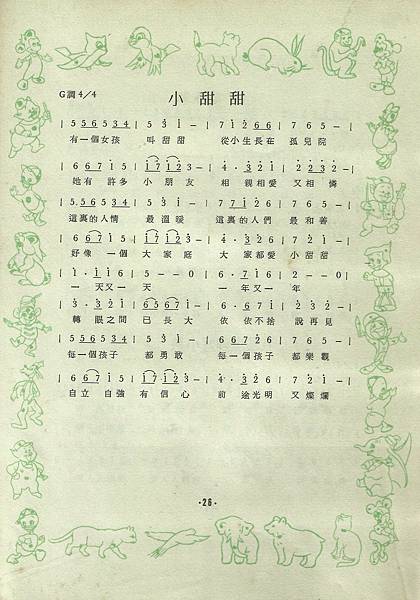 G調4/4
小甜甜
| 5 5 6 5 3 4 | 5 3 1 – | 7 1 2 6 6 | 7 6 5 – |
有一個女孩 叫甜甜 從小生長在 孤兒院
| 6 6 7 1 5 | 1 7 1 2 3 – | 4 · 3 2 1 | 2 2 3 2 – |
她有 許多 小朋友 相 親相愛 又相憐
| 5 5 6 5 3 4 | 5 3 1 – | 7 1 2 6 6 | 7 6 5 – |
這裏的人情 最溫暖 這裏的人們 最和善
| 6 6 7 1 5 | 1 7 1 2 3 – | 4 · 3 2 6 | 7 6 5 – |
好像 一個 大家庭 大 家都愛 小甜甜
| 1 · 1 1 6 | 5 – – 0 | 6 · 7 1 6 | 2 – – 0 |
一 天又一 天 一 年又一 年
| 3 · 3 2 1 | 6 5 6 7 1 – | 6 · 7 1 6 | 2 3 2 – |
轉 眼之間 已長大 依 依不捨 說再見
| 5 5 6 5 3 4 | 5 3 1 – | 7 1 2 6 6 | 7 6 5 – |
每一個孩子 都勇敢 每一個孩子 都樂觀
| 6 6 7 1 5 | 1 7 1 2 3 – | 4 · 3 2 6 | 7 6 5 – |
自立 自強 有信心 前 途光明 又燦爛
·26·